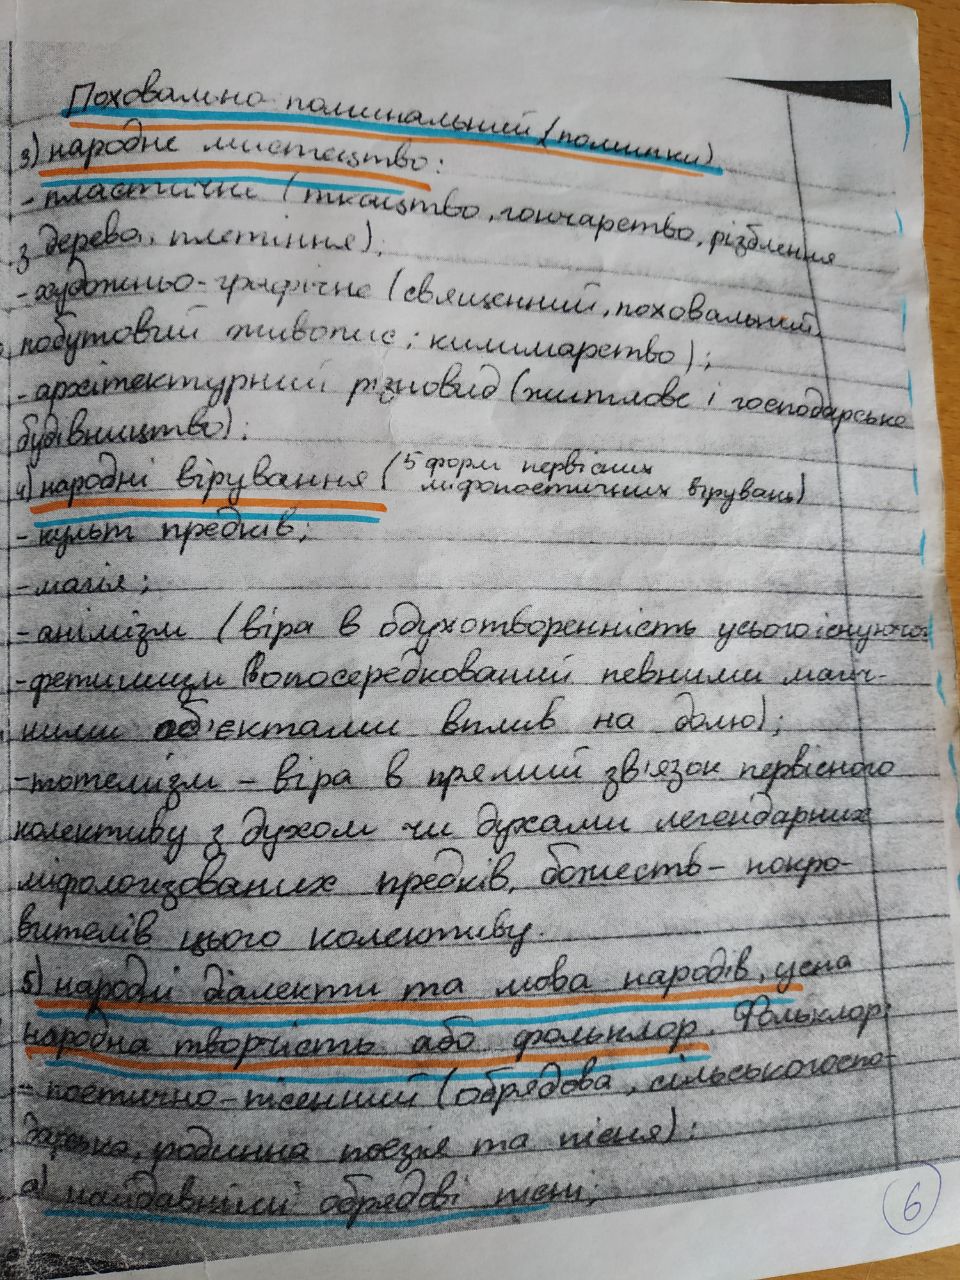 Поховально поминальний (поминки)
3) народне мистецтво:
- пластичне (ткацтво, гончарство, різблення
з дерева, плетіння);
- художньо-графічне (священний, поховальний,
побутовий живопис; килимарство);
- архітектурний різновид (житлове і господарське
будівництво);
4) народні вірування (5 форм первісних
міфопоетичних вірувань)
- культ предків;
- магія;
- анімізм (віра в одухотворенність усього існуючого
- фетишизм (опосередкований певними магіч-
ними об'єктами вплив на долю);
- тотемізм - віра в прямий зв'язок первісного
колективу з духом чи духами легендарних
міфологізованих предків, божеств - покро-
вителів цього колективу.
5) народні діалекти та мова народів, усна
народна творчість або фольклор. Фольклор:
- поетично-пісенний (обрядова, сільськогоспо-
дарська, родинна поезія та пісня):
а) найдавніші обрядові пісні;
6